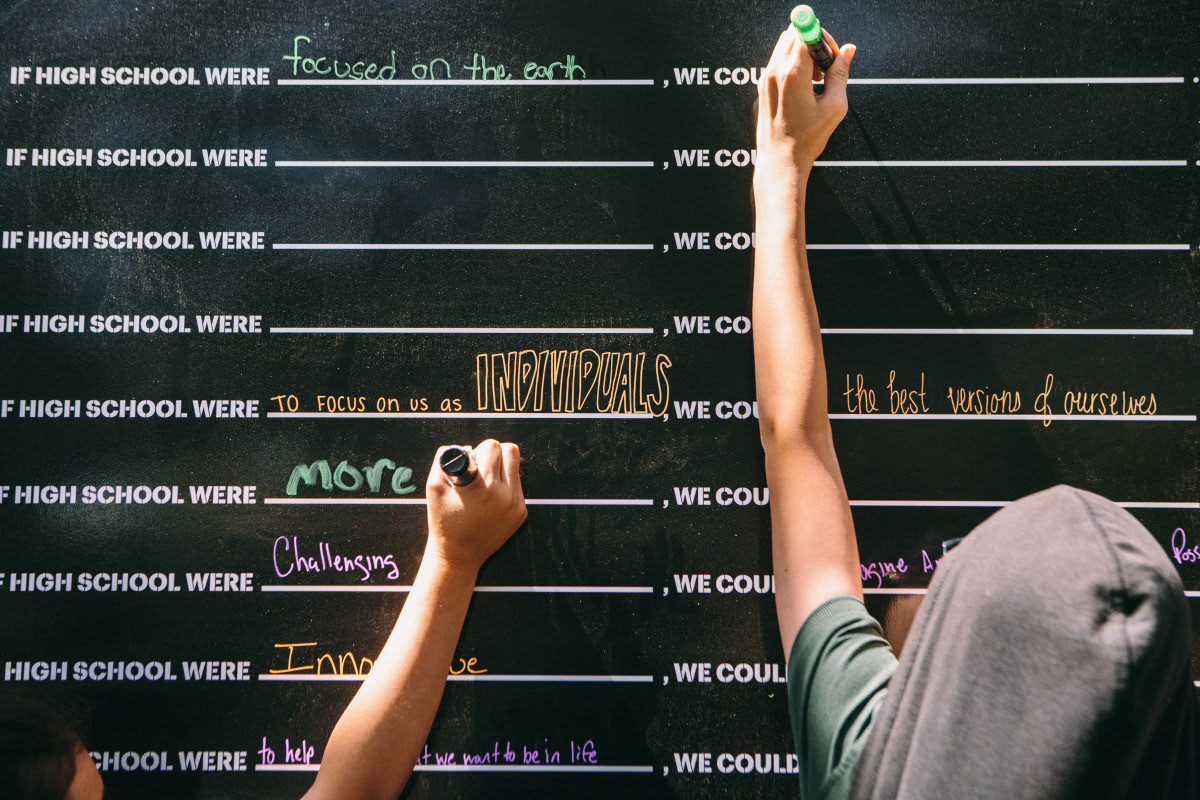 IF HIGH SCHOOL WERE focused on the earth, WE COU .
IF HIGH SCHOOL WERE , WE COU
IF HIGH SCHOOL WERE , WE COU
IF HIGH SCHOOL WERE , WE CO
F HIGH SCHOOL WERE TO FOCUS ON US AS INDIVIDUALS, WE COU the best versions of ourselves
F HIGH SCHOOL WERE more , WE COU
F HIGH SCHOOL WERE Challenging , WE COUL agine Poss
HIGH SCHOOL WERE , WE COULD
CHOOL WERE to help we want to be in life , WE COULD